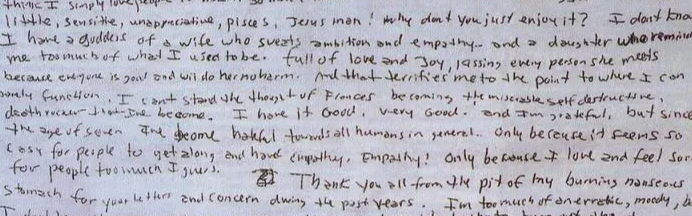 think I simply love people
little, sensitive, unappreciative, pisces, Jesus man! why dont you just enjoy it? I dont kno
I have a goddess of a wife who sweats ambition and empathy.. and a daughter who remind
me too much of what I used to be. full of love and Joy, kissing every person she meets
because everyone is good and will do her no harm. And that terrifies me to the point to where I can
barely function. I cant stand the thought of Frances becoming the miserable self destructive,
deathrocker that Ive become. I have it Good, very Good. and I'm grateful, but since
the age of seven Ive become hateful towards all humans in general.. Only because it seems so
easy for people to get along and have empathy. Empathy! Only because I love and feel sor
for people too much I guess.
Thank you all from the pit of my burning nauseous
stomach for your letters and concern during the past years. I'm too much of an erratic, moody, b